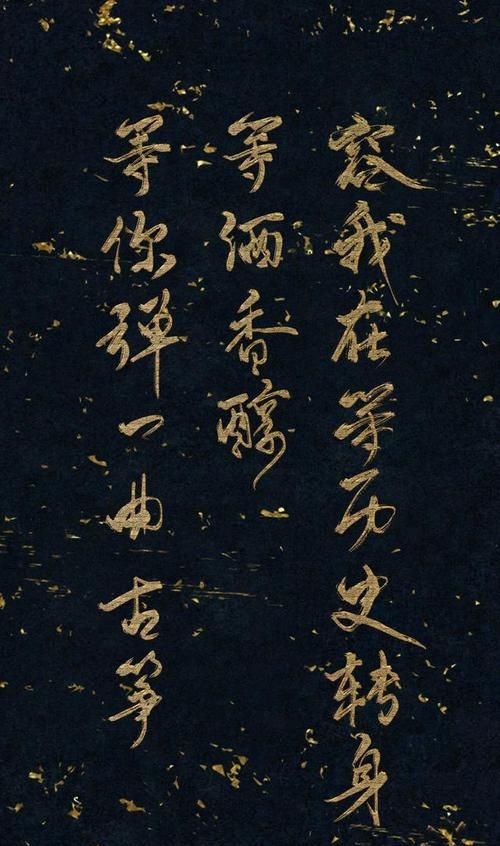 容我在等历史转身
等酒香醇
等你弹一曲古筝